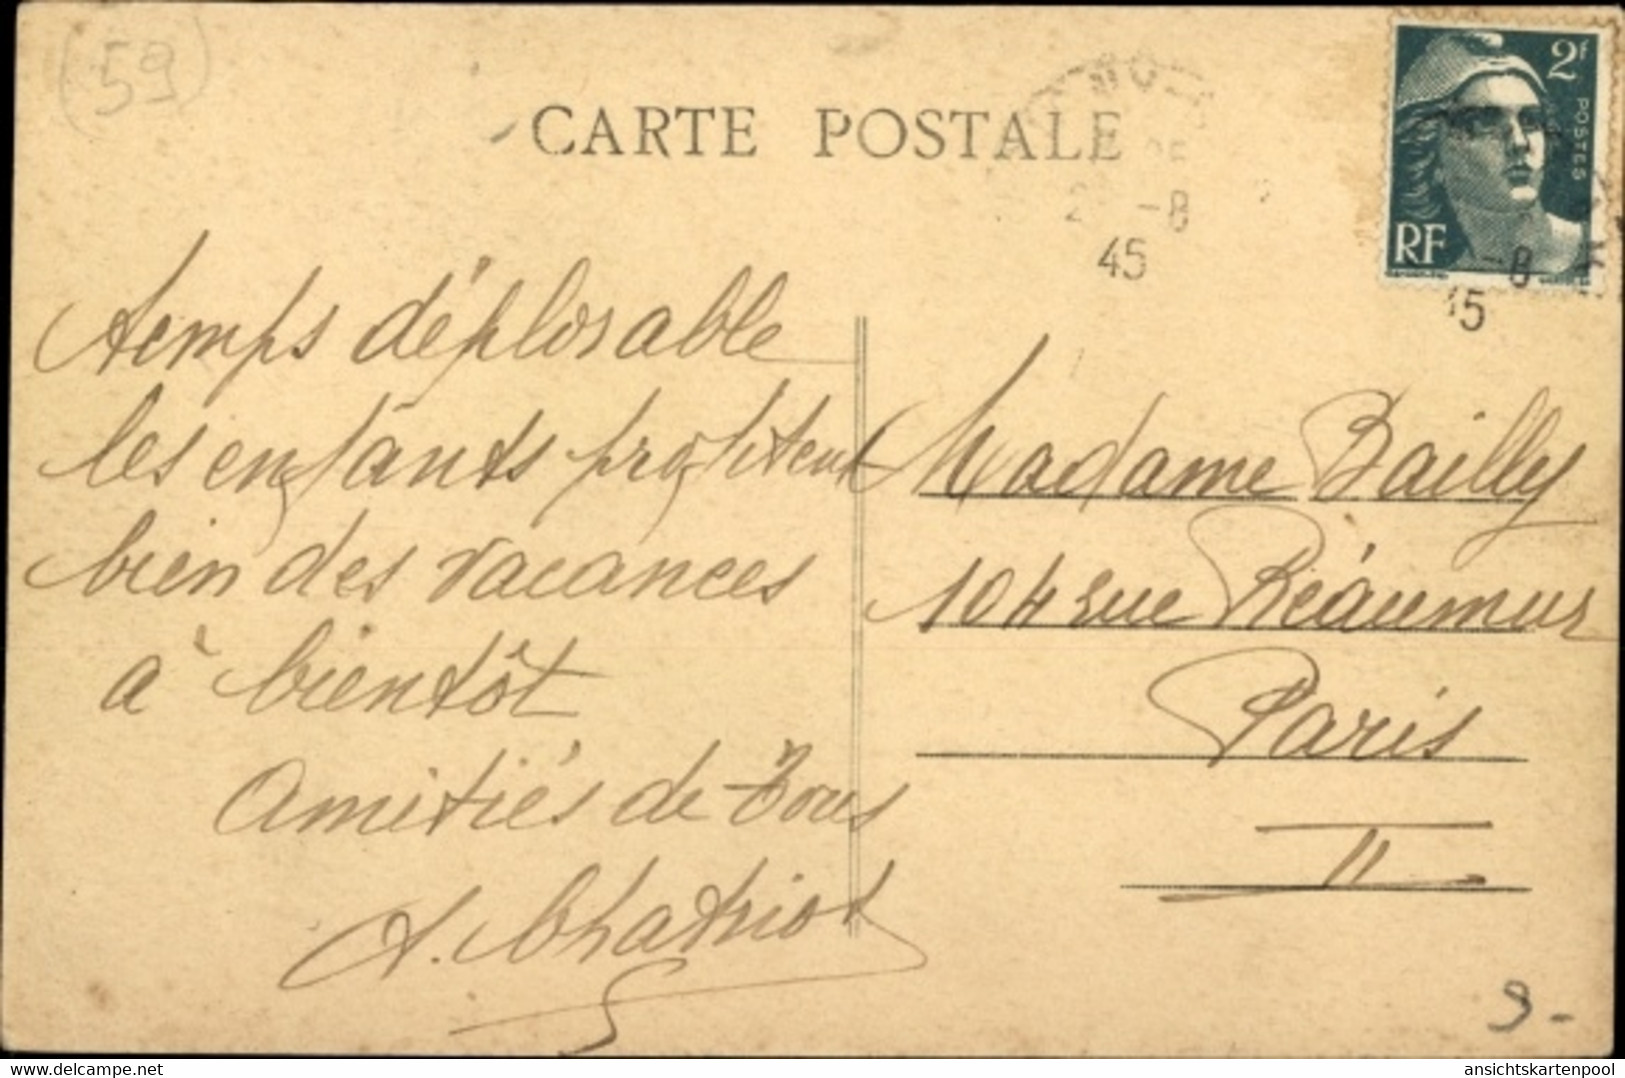 (59)
CARTE POSTALE
2F
POSTES
RF
-8
45
-8
Temps déplorable
les enfants profitent
bien des vacances
à bientôt
Amitiés de Tous
A. Chatriot
Madame Bailly
104 rue Réaumur
Paris
II
9-
www.delcampe.net
ansichtskartenpool